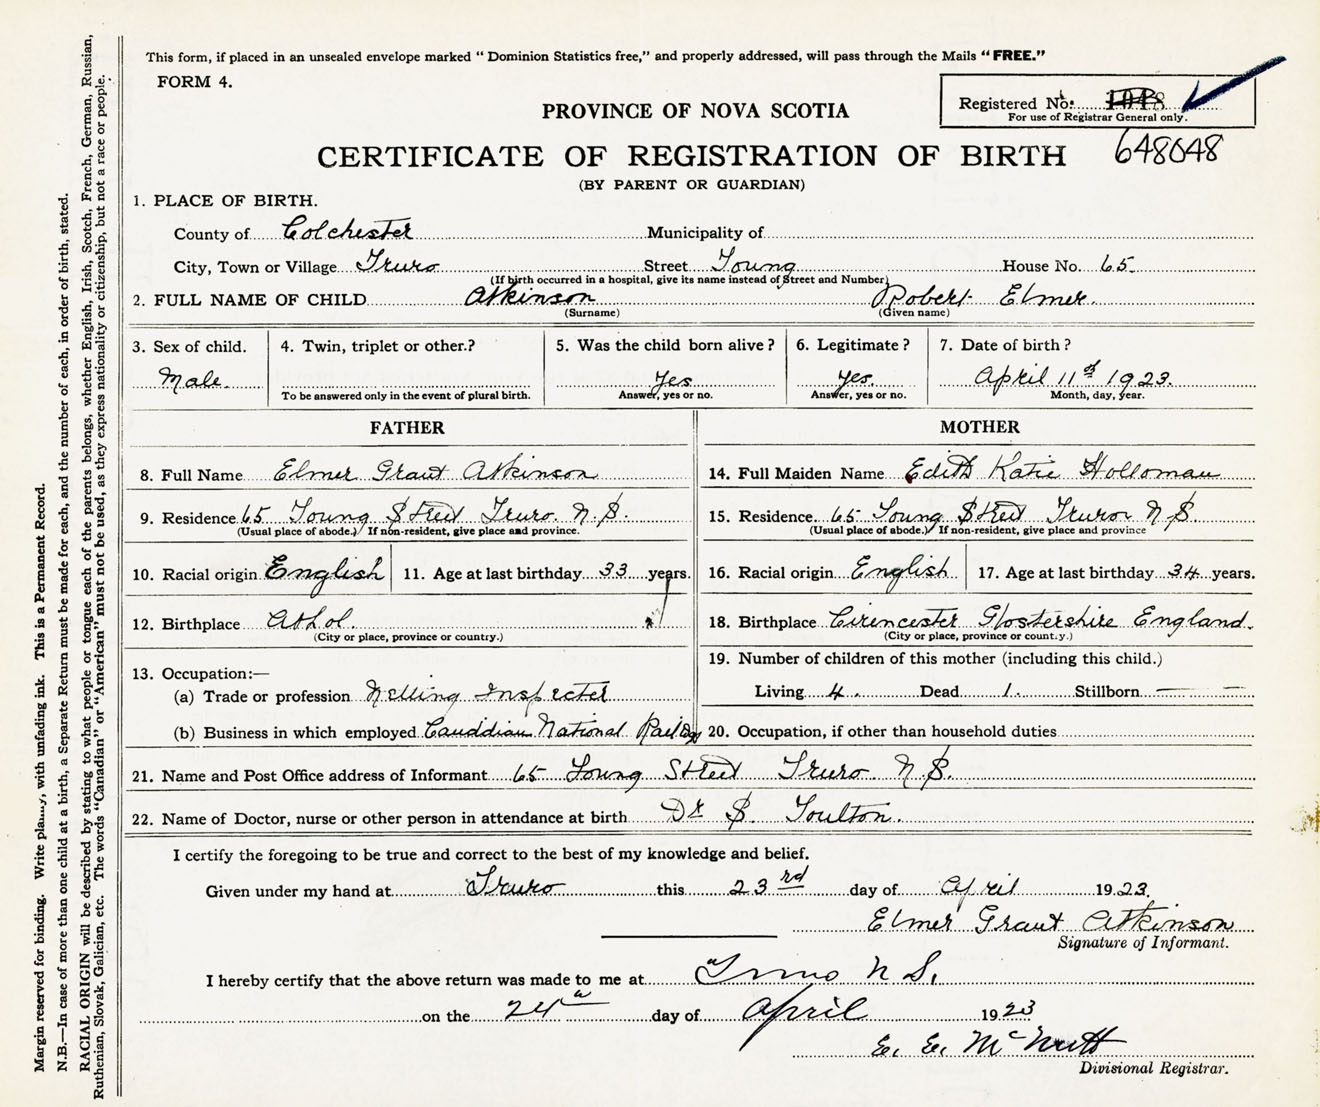 This form, if placed in an unsealed envelope marked "Dominion Statistics free," and properly addressed, will pass through the Mails "FREE."
FORM 4.
Registered No.
For use of Registrar General only.
648048
PROVINCE OF NOVA SCOTIA
CERTIFICATE OF REGISTRATION OF BIRTH
(BY PARENT OR GUARDIAN)
1. PLACE OF BIRTH.
County of Colchester Municipality of
City, Town or Village Truro Street Young House No. 65
(If birth occurred in a hospital, give its name instead of Street and Number)
2. FULL NAME OF CHILD Atkinson Robert Elmer.
(Surname) (Given name)
3. Sex of child. 4. Twin, triplet or other.? 5. Was the child born alive? 6. Legitimate? 7. Date of birth?
Male. Yes Yes. April 11th 1923.
To be answered only in the event of plural birth. Answer, yes or no. Answer, yes or no. Month, day, year.
FATHER MOTHER
8. Full Name Elmer Grant Atkinson 14. Full Maiden Name Edith Katie Holloman
9. Residence 65 Young Street Truro. N.S. 15. Residence 65 Young Street Truro N.S.
(Usual place of abode.) If non-resident, give place and province. (Usual place of abode.) If non-resident, give place and province
10. Racial origin English 11. Age at last birthday 33 years. 16. Racial origin English 17. Age at last birthday 34 years.
12. Birthplace Athol. 18. Birthplace Cirencester Glostershire England.
(City or place, province or country.) (City or place, province or county.)
19. Number of children of this mother (including this child.)
13. Occupation:—
(a) Trade or profession Inspector Living 4. Dead 1. Stillborn — —
(b) Business in which employed Canadian National Railway 20. Occupation, if other than household duties
21. Name and Post Office address of Informant 65 Young Street Truro. N.S.
22. Name of Doctor, nurse or other person in attendance at birth Dr S.
I certify the foregoing to be true and correct to the best of my knowledge and belief.
Given under my hand at Truro this 23rd day of April 1923.
Elmer Grant Atkinson
Signature of Informant.
I hereby certify that the above return was made to me at Truro N.S.
on the 24th day of April 1923
E. E. McNutt
Divisional Registrar.
Margin reserved for binding. Write plainly, with unfading ink. This is a Permanent Record.
N.B.—In case of more than one child at a birth, a Separate Return must be made for each, and the number of each, in order of birth, stated.
RACIAL ORIGIN will be described by stating to what people or tongue each of the parents belongs, whether English, Irish, Scotch, French, German, Russian,
Ruthenian, Slovak, Galician, etc. The words "Canadian" or "American" must not be used, as they express nationality or citizenship, but not a race or people.